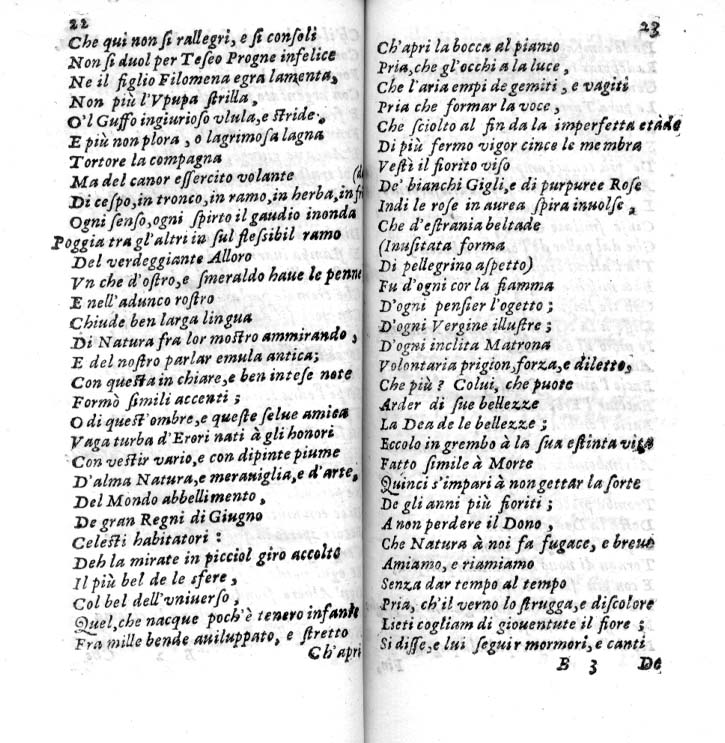 22
Che qui non ſi rallegri, e ſi conſoli
Non ſi duol per Teſeo Progne infelice
Ne il figlio Filomena egra lamenta,
Non più l'Vpupa ſtrilla,
O'l Guffo ingiurioſo vlula, e ſtride.
E più non plora, o lagrimoſa lagna
Tortore la compagna
Ma del canor eſſercito volante
Di ceſpo, in tronco, in ramo, in herba, in
Ogni ſenſo, ogni ſpirto il gaudio inonda
Poggia tra gl'altri in ſul fleſſibil ramo
Del verdeggiante Alloro
Vn che d'oſtro, e ſmeraldo haue le penne
E nell'adunco roſtro
Chiude ben larga lingua
Di Natura fra lor moſtro ammirando,
E del noſtro parlar emula antica;
Con queſta in chiare, e ben inteſe note
Formò ſimili accenti;
O di queſt'ombre, e queſte ſelue amica
Vaga turba d'Erori nati à gli honori
Con veſtir vario, e con dipinte piume
D'alma Natura, e merauiglia, e d'arte,
Del Mondo abbellimento,
De gran Regni di Giugno
Celeſti habitatori:
Deh la mirate in picciol giro accolto
Il più bel de le sfere,
Col bel dell'vniuerſo,
Quel, che nacque poch'è tenero infante
Fra mille bende auiluppato, e ſtretto
Ch'apri
23
Ch'apri la bocca al pianto
Pria, che gl'occhi a la luce,
Che l'aria empi de gemiti, e vagiti
Pria che formar la voce,
Che ſciolto al fin da la imperfetta etade
Di più fermo vigor cince le membra
Veſti il fiorito viſo
De' bianchi Gigli, e di purpuree Roſe
Indi le roſe in aurea ſpira inuolſe,
Che d'eſtrania beltade
(Inuſitata forma
Di pellegrino aſpetto)
Fu d'ogni cor la fiamma
D'ogni penſier l'ogetto;
D'ogni Vergine illuſtre;
D'ogni inclita Matrona
Volontaria prigion, forza, e diletto,
Che più? Colui, che puote
Arder di ſue bellezze
La Dea de le bellezze;
Eccolo in grembo à la ſua eſtinta vita
Fatto ſimile à Morte
Quinci s'impari à non gettar la ſorte
De gli anni più fioriti;
A non perdere il Dono,
Che Natura à noi fa fugace, e breue
Amiamo, e riamiamo
Senza dar tempo al tempo
Pria, ch'il verno lo ſtrugga, e diſcolore
Lieti cogliam di giouentute il fiore;
Si diſſe, e lui ſeguir mormori, e canti
B 3 De